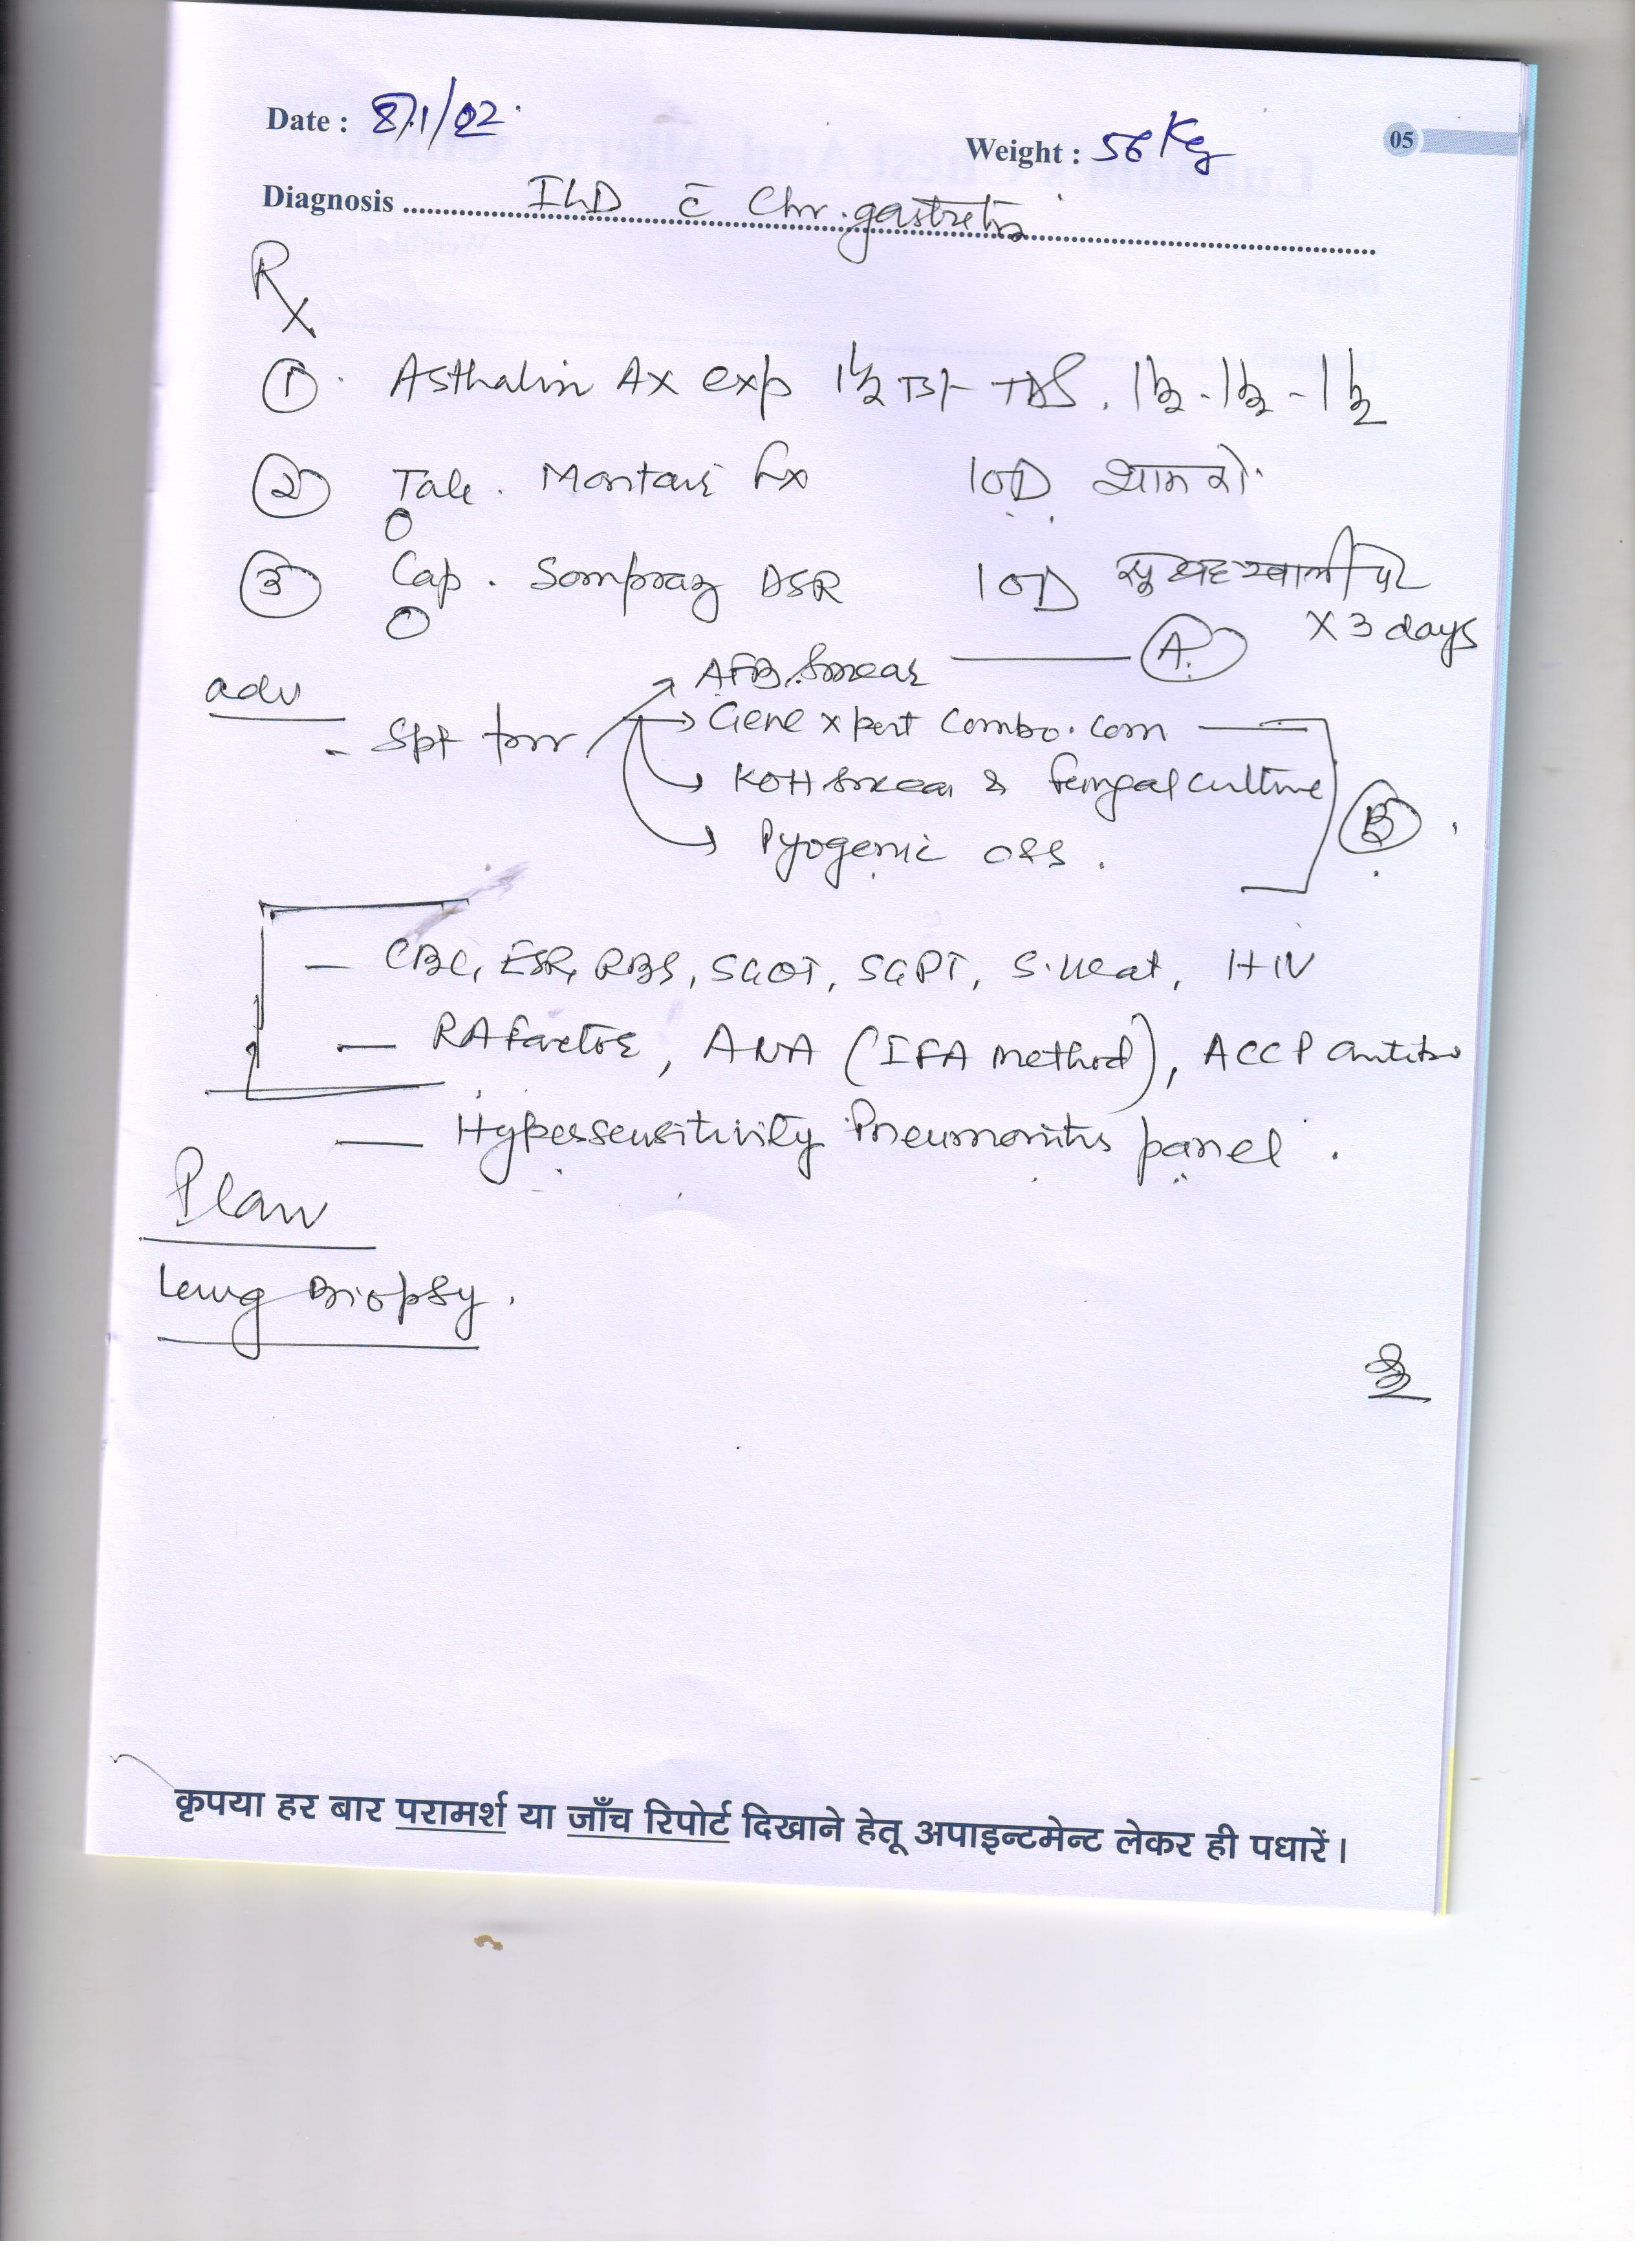 Date : 8/1/02
Weight : 56 Kg
05
Diagnosis ILD c̄ Chr. gastretis
Rx
① Asthalin AX exp 1½ TSF TDS. 1½ - 1½ - 1½
② Tab. Montair Lx 1OD शाम को
③ Cap. Sompraz DSR 1OD सुबह खाली पेट
X 3 days
adv
AFB Smear — A.
- Spt for → Gene xpert combo.
KOH smear & Fungal culture
B
Pyogenic c&s.
— CBC, ESR, RBS, SGOT, SGPT, S. Ucat, HIV
— RA factor, ANA (IFA method), ACCP antibo
— Hypersensitivity Pneumonitis panel.
Plan
Lung Biopsy.
कृपया हर बार परामर्श या जाँच रिपोर्ट दिखाने हेतू अपाइन्टमेन्ट लेकर ही पधारें।